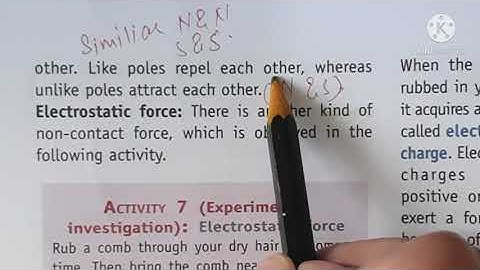 Similiar N&N
S&S.
other. Like poles repel each other, whereas
unlike poles attract each other. (N &S)
Electrostatic force: There is another kind of
non-contact force, which is observed in the
following activity.
ACTIVITY 7 (Experime
investigation): Electrostatic force
Rub a comb through your dry hair
time. Then bring the comb nea
When the
rubbed in y
it acquires a
called elect
charge. Elec
charges
positive or
exert a fo
of
K